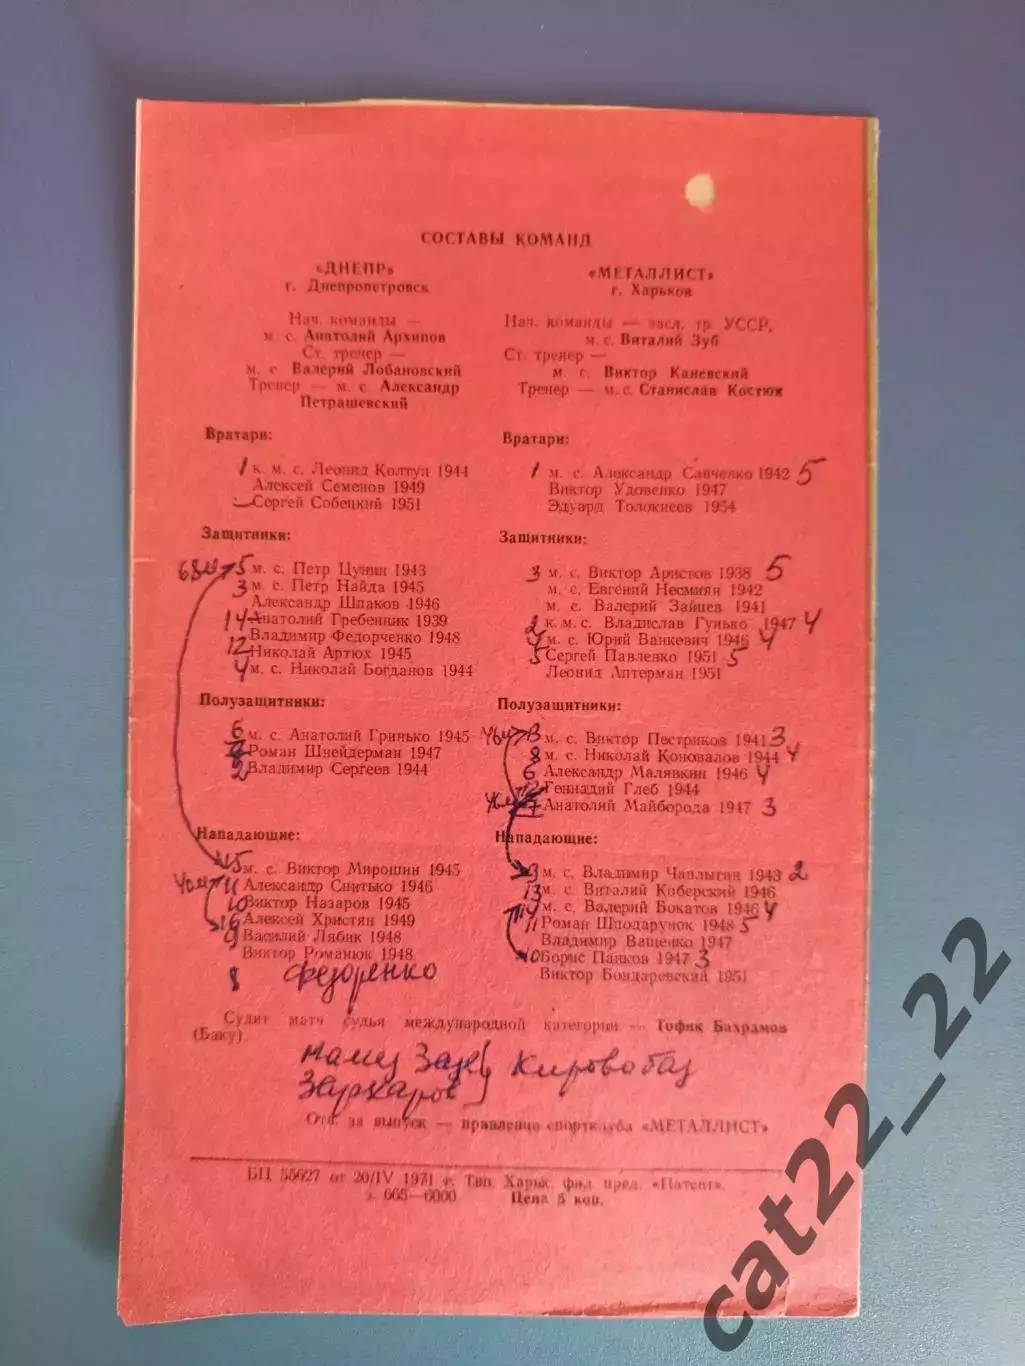 СОСТАВЫ КОМАНД
«ДНЕПР»
г. Днепропетровск
Нач. команды —
м. с. Анатолий Архипов
Ст. тренер —
м. с. Валерий Лобановский
Тренер — м. с. Александр
Петрашевский
Вратари:
1 к. м. с. Леонид Колтун 1944
Алексей Семенов 1949
Сергей Собецкий 1951
Защитники:
68м 5 м. с. Петр Цунин 1943
3 м. с. Петр Найда 1945
Александр Шпаков 1946
14 Анатолий Гребенник 1939
Владимир Федорченко 1948
12 Николай Артюх 1945
4 м. с. Николай Богданов 1944
Полузащитники:
6 м. с. Анатолий Гринько 1945
Роман Шнейдерман 1947
2 Владимир Сергеев 1944
Нападающие:
15 м. с. Виктор Мирошин 1945
40м 11 Александр Снитько 1946
10 Виктор Назаров 1945
16 Алексей Христян 1949
9 Василий Лябик 1948
Виктор Романюк 1948
8 Федоренко
«МЕТАЛЛИСТ»
г. Харьков
Нач. команды — засл. тр. УССР,
м. с. Виталий Зуб
Ст. тренер —
м. с. Виктор Каневский
Тренер — м. с. Станислав Костюк
Вратари:
1 м. с. Александр Савченко 1942 5
Виктор Удовенко 1947
Эдуард Толокнеев 1954
Защитники:
3 м. с. Виктор Аристов 1938 5
м. с. Евгений Несмиян 1942
м. с. Валерий Зайцев 1941
2 к. м. с. Владислав Гунько 1947 4
4 м. с. Юрий Ванкевич 1946 4
5 Сергей Павленко 1951 5
Леонид Аптерман 1951
Полузащитники:
46м м. с. Виктор Пестриков 1941 3
8 м. с. Николай Коновалов 1944 4
6 Александр Малявкин 1946 4
12 Геннадий Глеб 1944
46м Анатолий Майборода 1947 3
Нападающие:
м. с. Владимир Чаплыгин 1943 2
13 м. с. Виталий Коберский 1946
14 м. с. Валерий Бокатов 1946 4
11 Роман Шподарунок 1948 5
Владимир Ващенко 1947
10 Борис Панков 1947 3
Виктор Бондаревский 1951
Судит матч судья международной категории — Тофик Бахрамов
(Баку).
Кировобад
Отв. за выпуск — правление спортклуба «МЕТАЛЛИСТ»
БЦ 55627 от 20/IV 1971 г. Тип. Харьк. фил. пред. «Патент».
з. 665—6000 Цена 5 коп.
cat22_22